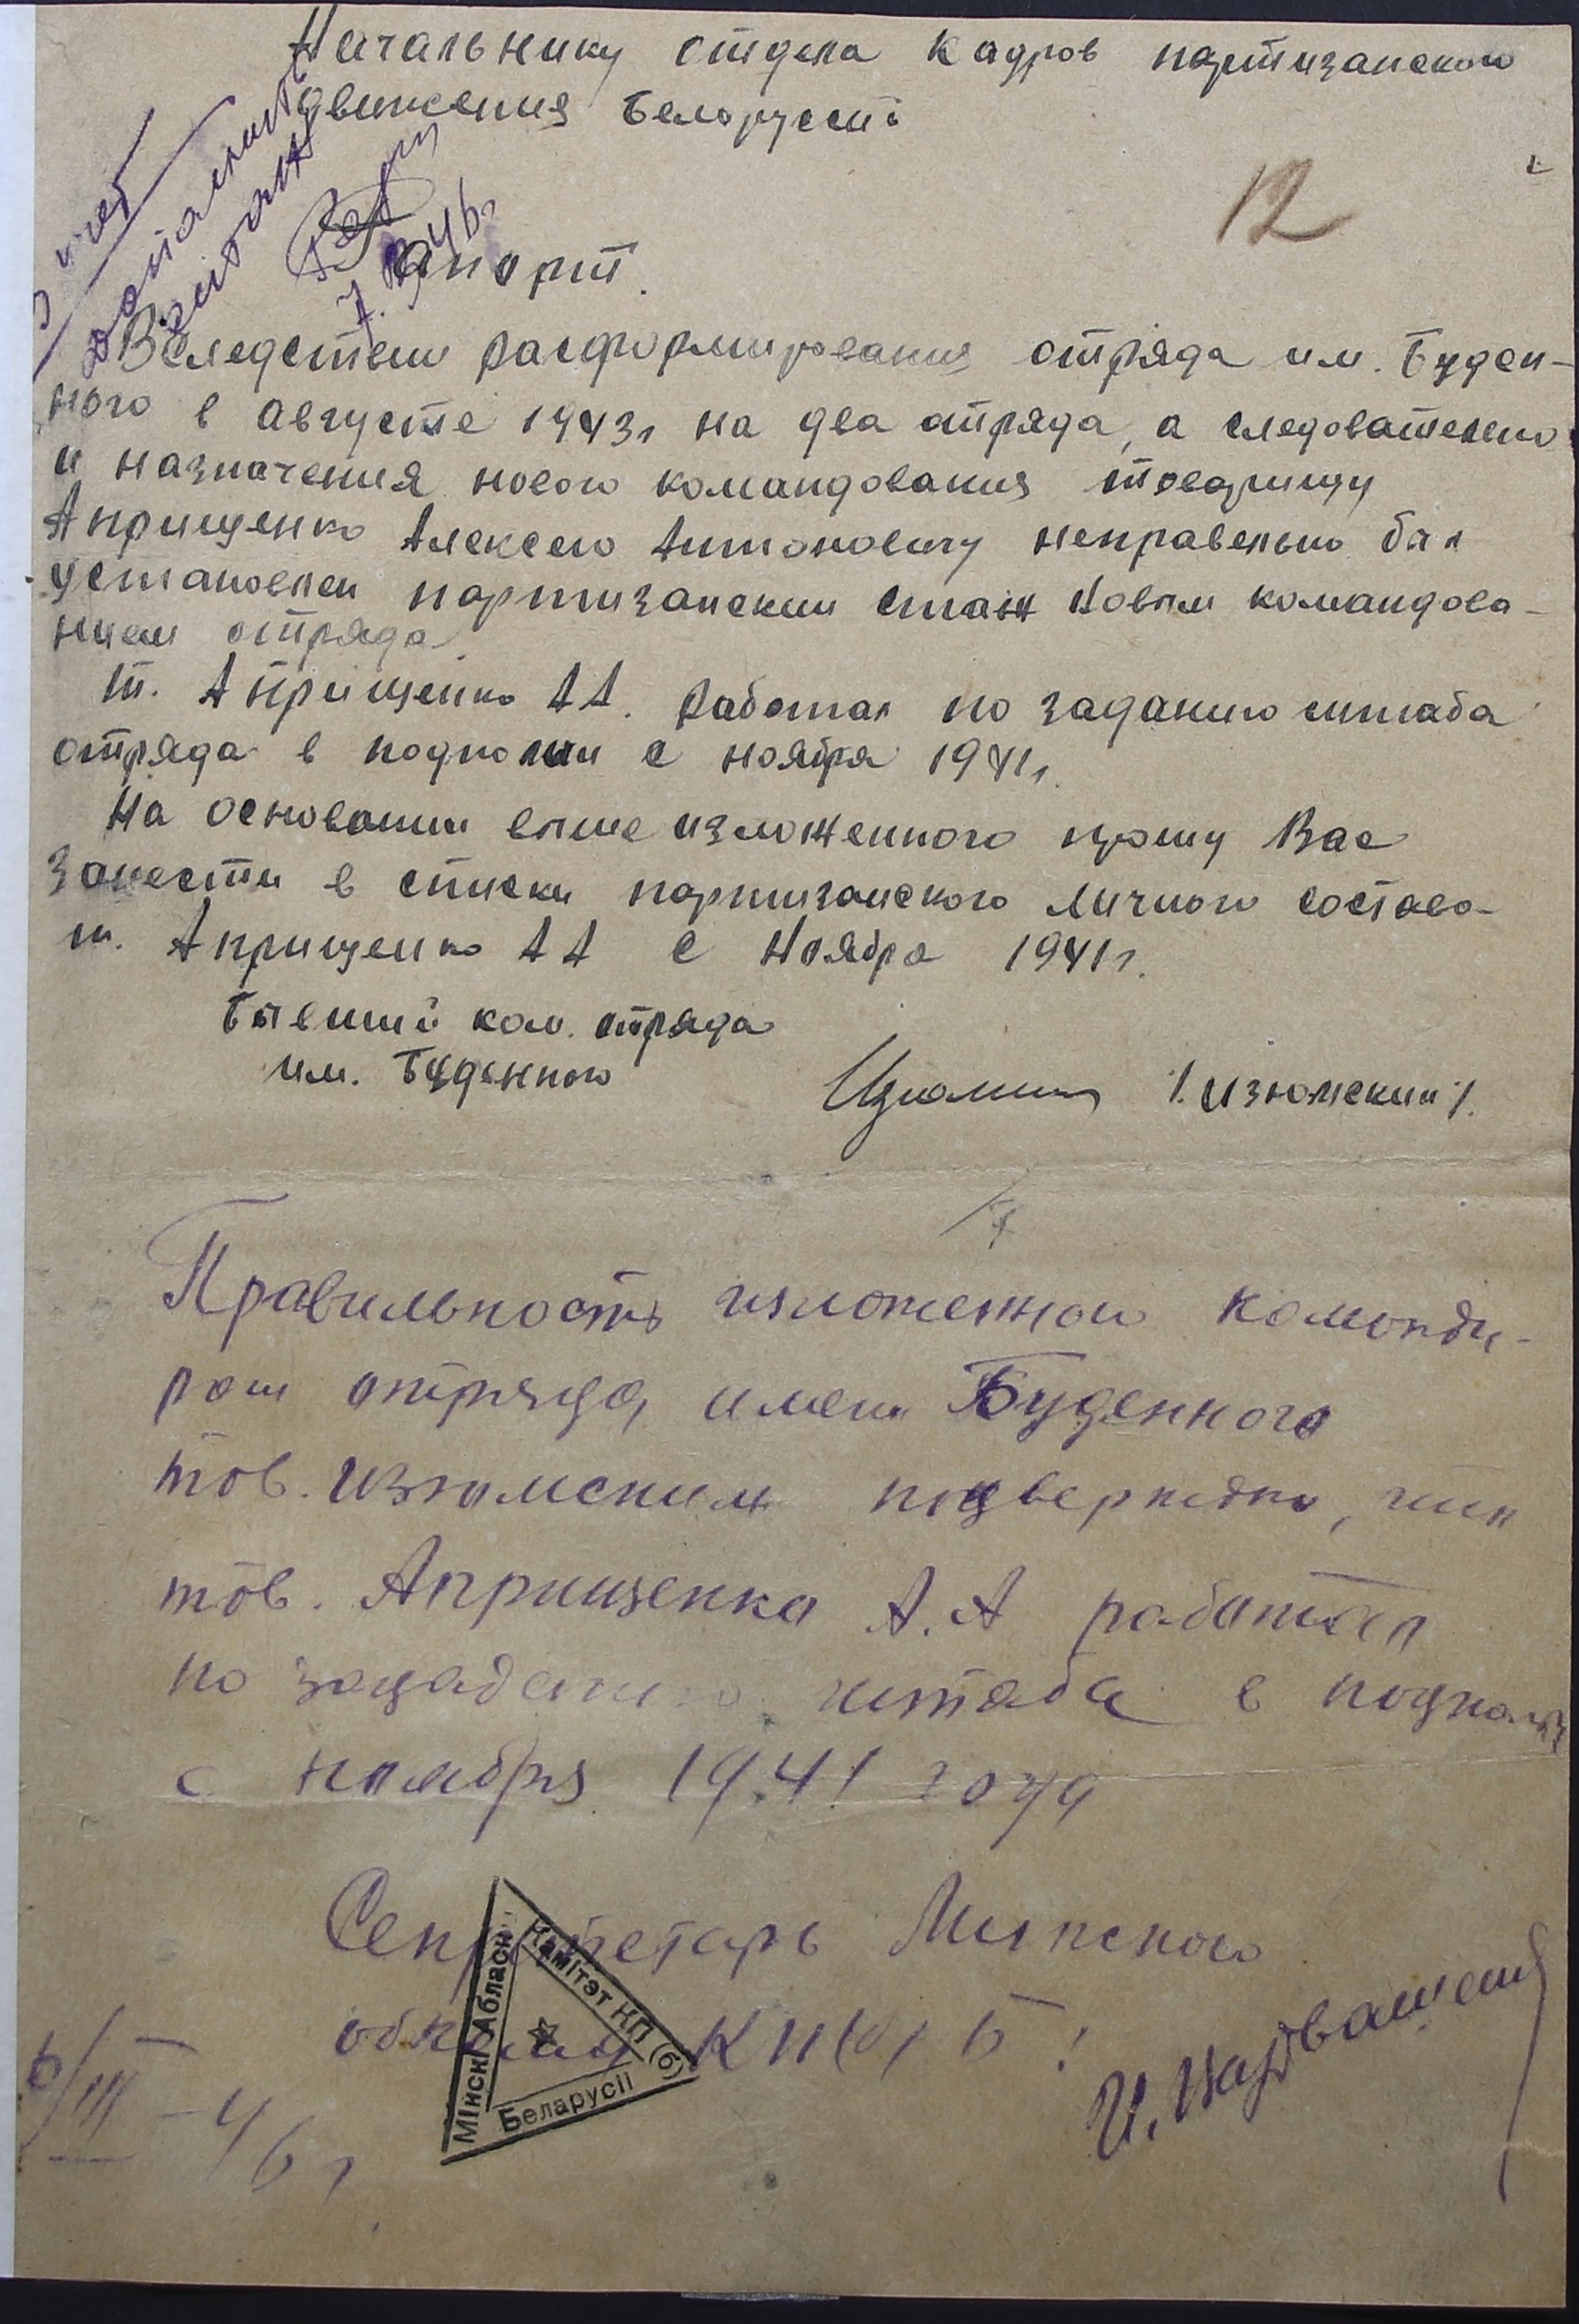 Начальнику отдела кадров партизанского
движения Белоруссии
12
Рапорт.
7. 46г
Вследствии расформирования отряда им. Буден-
ного в августе 1943г на два отряда, а следовательно
и назначения нового командования товарищу
Априщенко Алексею Антоновичу неправельно был
установлен партизанский стаж новым командова-
нием отряда.
т. Априщенко А А. работал по заданию штаба
отряда в подполии с ноября 1941г.
На основании выше изложенного прошу Вас
занести в списки партизанского личного состава
т. Априщенко А А с Ноября 1941г.
Бывший ком. отряда
им. Буденного
/. Изюмский /.
Правильность изложенного команди-
ром отряда имени Буденного
тов. Изюмским подвержаю,
тов. Априщенко А.А работал
по штаба в подполье
с ноября 1941 года
Секретарь Минского
обкома КП(б)Б:
6/III-46г
Мінскі Абласн
Камітэт КП(б)
Беларусіі